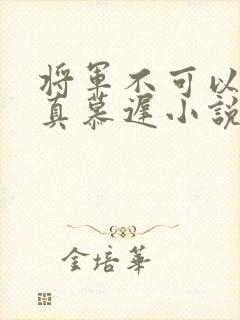 将軍不可以
真慕遲小說
金培華